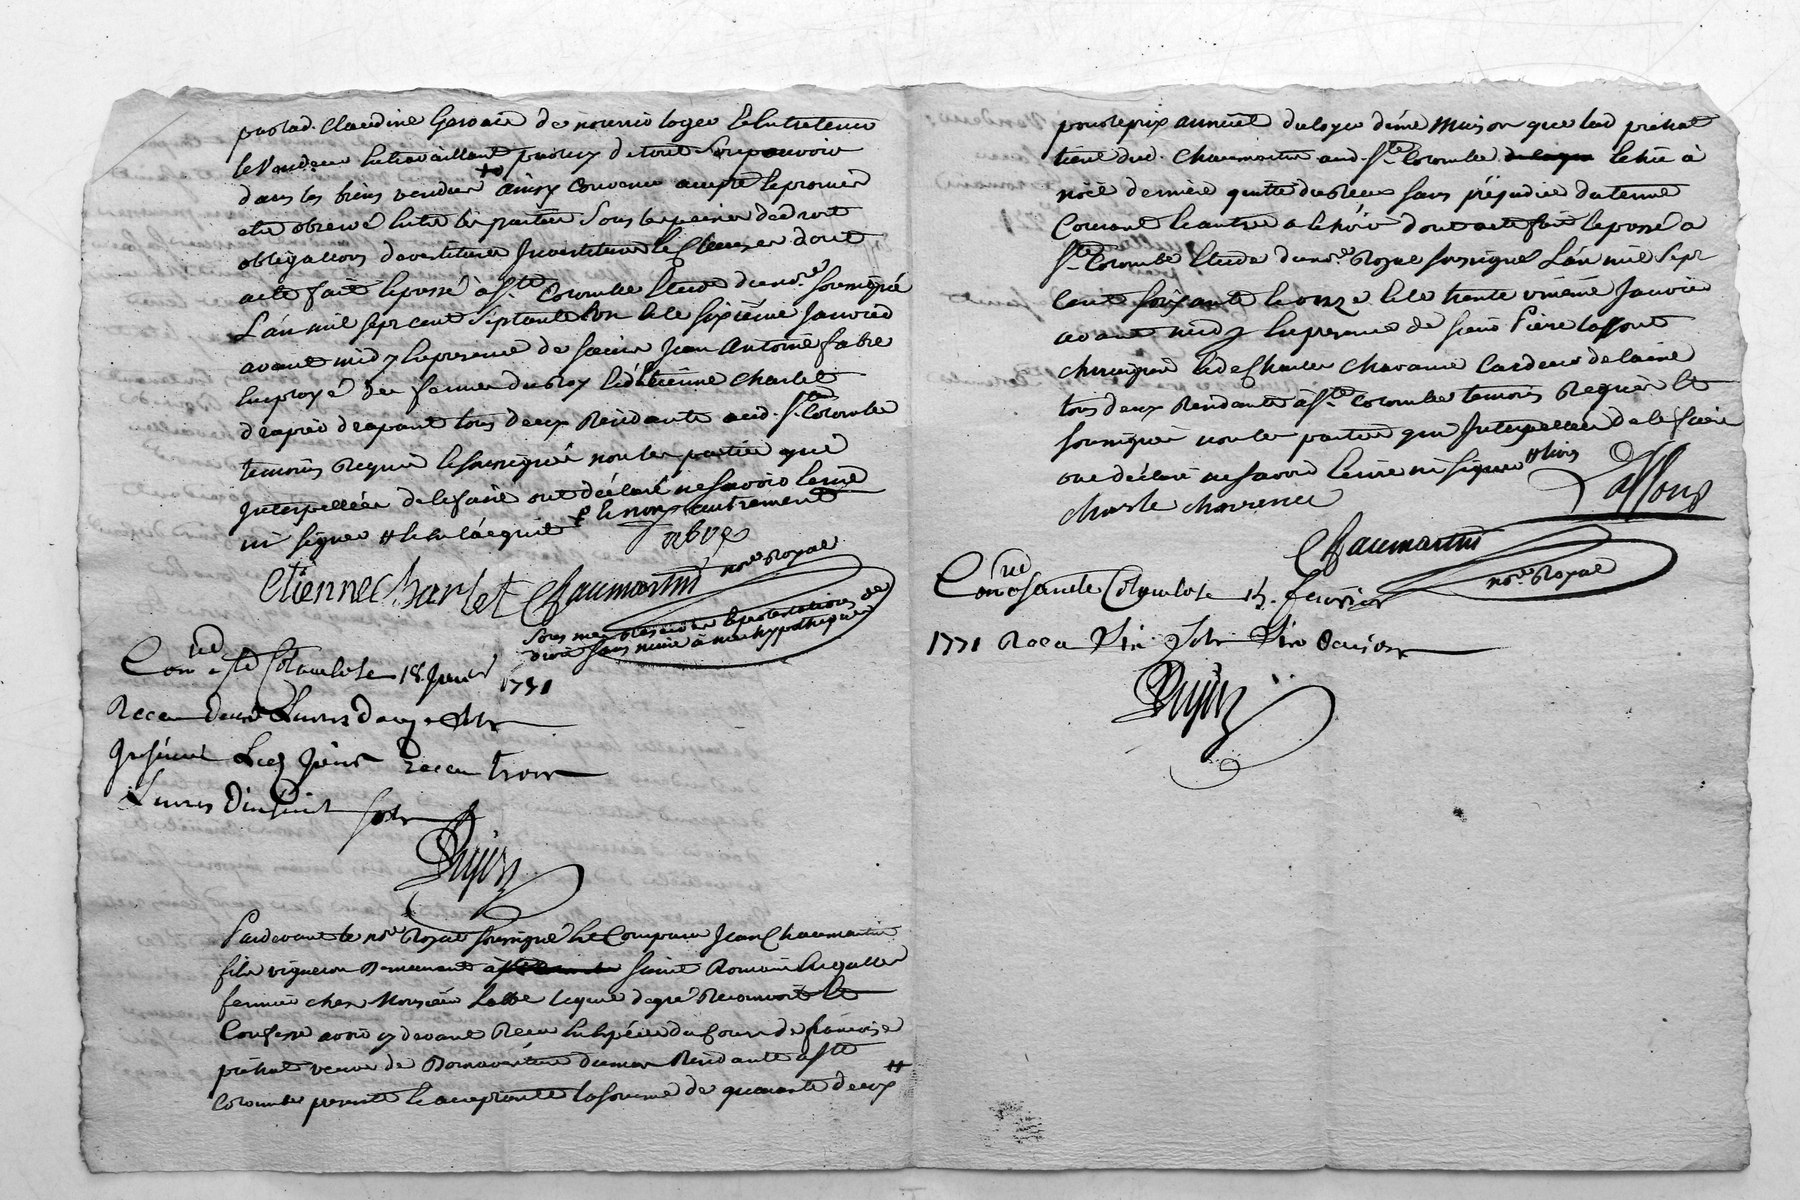 par lad. Claudine Gervais de nourrir loger et entretenir
le vendeur en travaillant par luy de tout son pouvoir
dans les biens vendus ainsy convenu accepté et promis
etre observé entre les parties sous les peines de droit
obligations devestitures Investitures et clauses dont
acte fait et passé à Ste Colombe Etude du nore soussigné
L'an mil sept cent septante un et le sixieme Janvier
avant midy en presence de sieur Jean Antoine fabre
employé des fermes du Roy et d'Etienne Charlet
drapier drapant tous deux Residants aud. Ste Colombe
temoins Requis et soussignés non les parties que
Interpellées de le faire ont déclaré ne savoir ecrire
ni signer # et en l'acquit et non autrement
fabre
etienne charlet Chaumartin nore Royal
sous mes reserves et protestations de
droit sans nuire à mes hypotheques
Con.lé a Ste Colombe le 18 Janvier 1771
Recu deux Livres douze sols
Insinué led. Jour Recu trois
Livres dix huit sols
Dujin
Pardevant le nore Royal soussigné est comparu Jean Chaumartin
fils vigneron demeurant à saint Romain en galles
fermier chez Monsieur Labbe lequel de gré Reconnoit et
Confesse avoir cy devant Recu en espéces du Cours de françoise
préhat veuve de Bonnaventure dumas Residante a Ste
Colombe presente et acceptante la somme de quarante deux #
pour le prix annuel du loyer d'une Maison que lad préhat
tient dud. Chaumartin aud. Ste Colombe echu à
noël dernier quitte du passé sans préjudice du terme
Courant et autres a echoir dont acte fait et passé a
Ste Colombe Etude du nore Royal soussigné L'an mil sept
cent soixante et onze et le trente unieme Janvier
avant midy en presence de sieur Pierre lassont
chirurgien et de Charles Chavanne cardeur de laine
tous deux Residants à Ste Colombe temoins Requis et
soussignés non les parties que Interpellées de le faire
ont déclaré ne savoir ecrire ni signer # livres
charle chavance Lassont
Chaumartin
nore Royal
Con.lé a Sainte Colombe le 15 fevrier
1771 Recu dix sols six deniers
Dujin